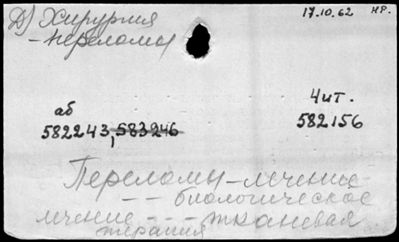 Д) Хирургия
17.10.62 НР.
- переломы
аб
582243, 583246
Чит.
582156
Переломы - лечение
- - биологическое
лечение - - тканевая
терапия